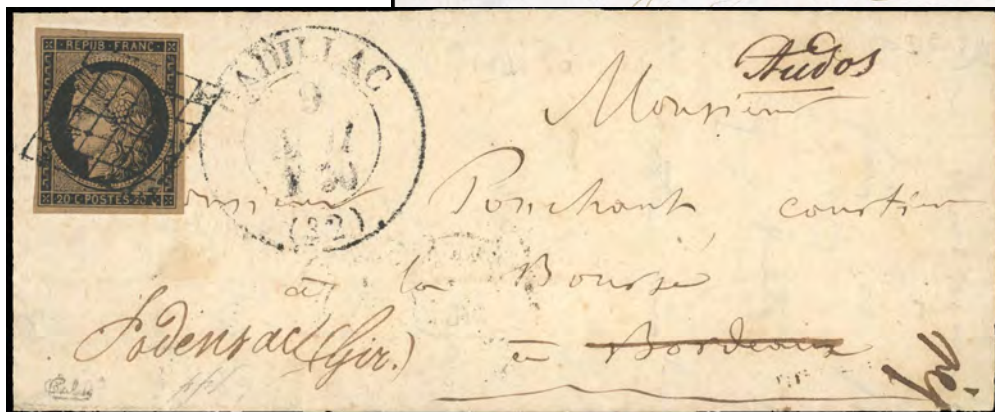 REPUB FRANC
20 C POSTES 20
CADILLAC
9
50
(32)
Audos
Monsieur
Monsieur Ponchant courtier
à la Bourse
à Bordeaux
Podensac (Gir.)